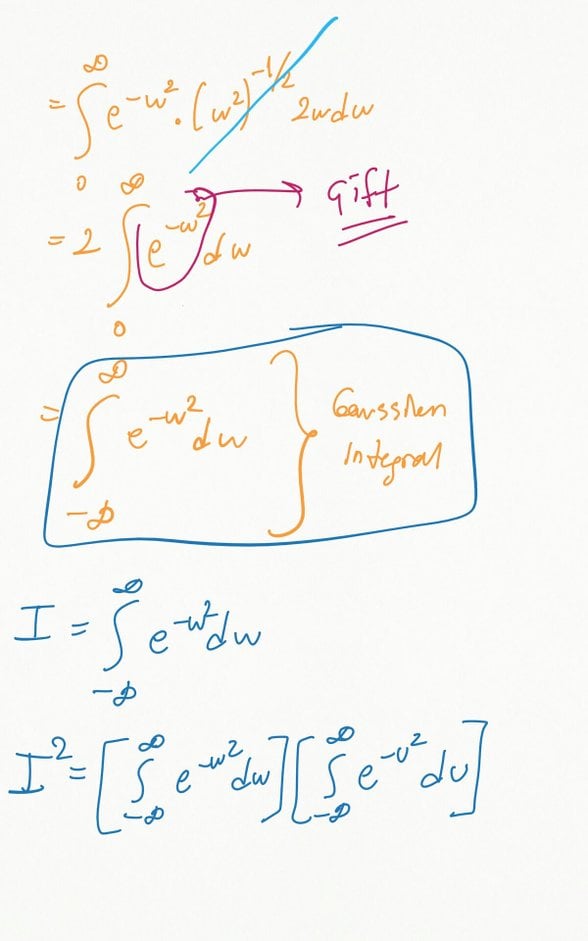 = ∫₀^∞ e^{-w²} · (w²)^{-1/2} 2w dw
= 2 ∫₀^∞ e^{-w²} dw → Gift
= ∫_{-∞}^∞ e^{-w²} dw } Gaussian
Integral
I = ∫_{-∞}^∞ e^{-w²} dw
I² = [∫_{-∞}^∞ e^{-w²} dw] [∫_{-∞}^∞ e^{-υ²} dυ]